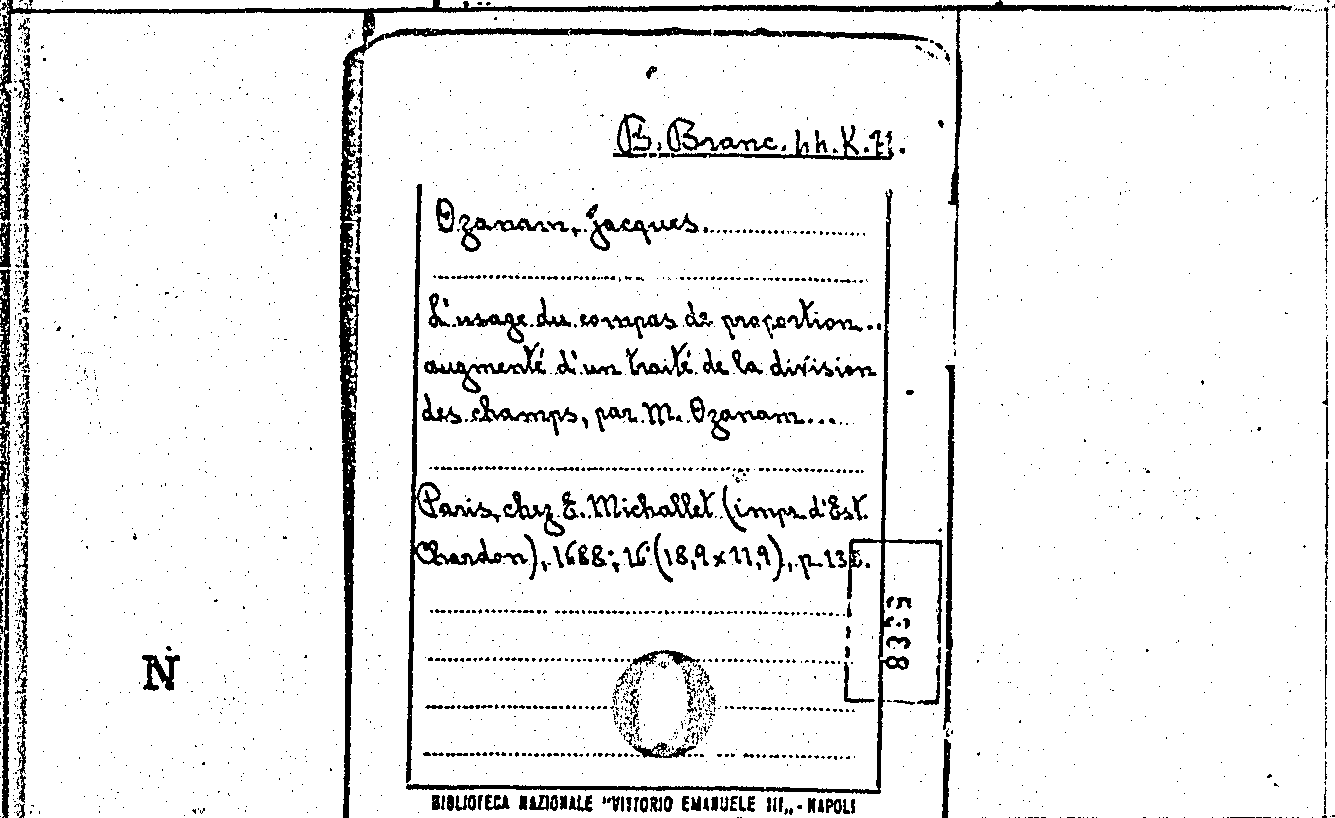 B. Branc. hh. K. 71.
Ozanam, Jacques.
L'usage du compas de proportion..
augmenté d'un traité de la division
des champs, par M. Ozanam...
Paris, chez E. Michallet (impr. d'Est.
Chardon), 1688; 16° (18,9 x 11,9), p. 138.
5338
N
BIBLIOTECA NAZIONALE "VITTORIO EMANUELE III„ - NAPOLI